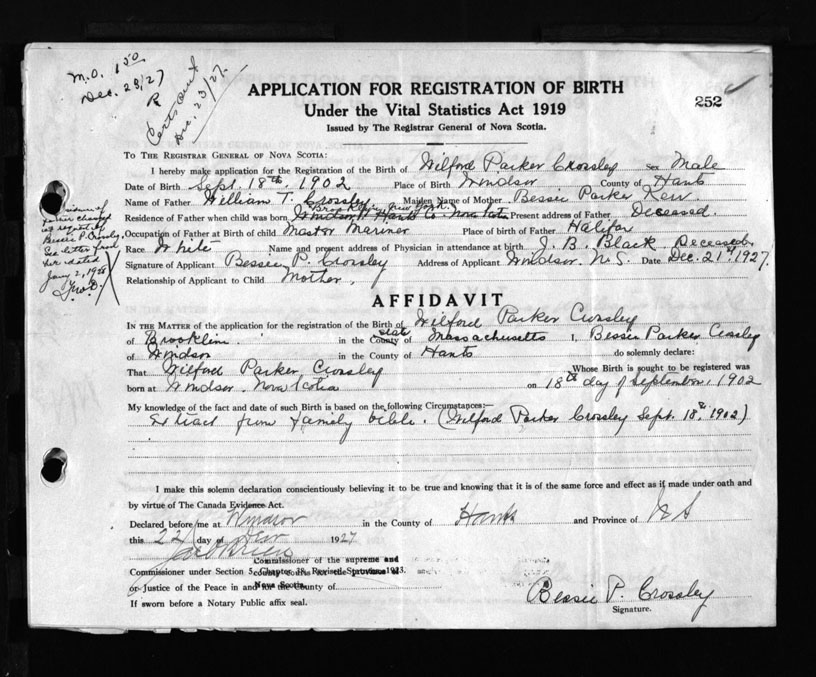 M.O. 1.50
Dec. 23/27
R
Certs out
Dec. 23/27.
APPLICATION FOR REGISTRATION OF BIRTH
Under the Vital Statistics Act 1919
Issued by The Registrar General of Nova Scotia.
252
TO THE REGISTRAR GENERAL OF NOVA SCOTIA:
I hereby make application for the Registration of the Birth of Wilford Parker Crossley Sex Male
Date of Birth Sept. 18th, 1902 Place of Birth Windsor County of Hants
Name of Father William T. Crossley Maiden Name of Mother Bessie Parker
Brooklyn, New York.
Residence of Father when child was born Windsor Hants Co. Nova Scotia Present address of Father Deceased.
Occupation of Father at Birth of child Master Mariner Place of birth of Father Halifax
Race White Name and present address of Physician in attendance at birth J. B. Black. Deceased.
Signature of Applicant Bessie P. Crossley Address of Applicant Windsor. N.S. Date Dec. 21st, 1927.
Relationship of Applicant to Child Mother.
of
father changed
at request of
Bessie P. Crossley
See letter from
her dated
Jany 2, 1928
AFFIDAVIT
IN THE MATTER of the application for the registration of the Birth of Wilford Parker Crossley
of Brookline in the County of State Massachusetts I, Bessie Parker Crossley
of Windsor in the County of Hants do solemnly declare:
That Wilford Parker Crossley Whose Birth is sought to be registered was
born at Windsor. Nova Scotia on 18th day of September, 1902
My knowledge of the fact and date of such Birth is based on the following Circumstances:—
Extract from family bible. (Wilford Parker Crossley Sept. 18th 1902)
I make this solemn declaration conscientiously believing it to be true and knowing that it is of the same force and effect as if made under oath and
by virtue of The Canada Evidence Act.
Declared before me at Windsor in the County of Hants and Province of N S
this 22 day of Dec 1927
Commissioner of the supreme and
Commissioner under Section 5, Chapter 38, Revised Statutes 1923.
county courts for the province of
Nova Scotia
or Justice of the Peace in and for the County of
If sworn before a Notary Public affix seal.
Bessie P. Crossley
Signature.